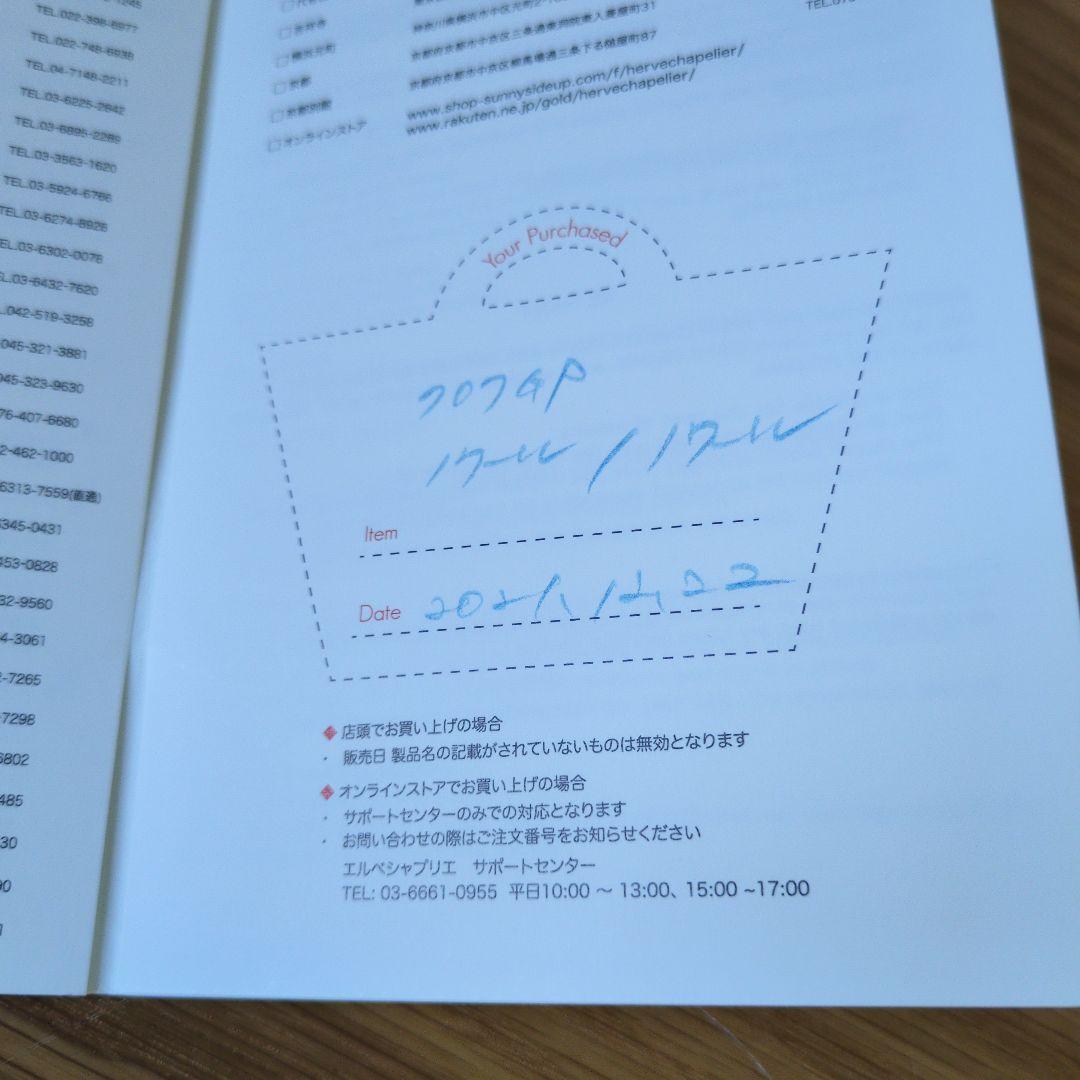 TEL.022-398-6977
TEL.022-748-6938
TEL.04-7148-2211
TEL.03-6225-2842
TEL.03-6895-2289
TEL.03-3563-1620
TEL.03-5924-6786
TEL.03-6274-8928
TEL.03-6302-0078
TEL.03-6432-7620
042-519-3258
045-321-3881
045-323-9630
76-407-6680
2-462-1000
6313-7559(直通)
6345-0431
453-0828
32-9560
4-3061
2-7265
7298
6802
485
30
□吉祥寺
□横浜元町
□京都
□京都別館
□オンラインストア
www.shop-sunnysideup.com/f/hervechapelier/
www.rakuten.ne.jp/gold/hervechapelier/
Your Purchased
707GP
ノワール / ノワール
Item
Date 2021. 12. 22
◆ 店頭でお買い上げの場合
・ 販売日 製品名の記載がされていないものは無効となります
◆ オンラインストアでお買い上げの場合
・ サポートセンターのみでの対応となります
・ お問い合わせの際はご注文番号をお知らせください
エルベシャプリエ サポートセンター
TEL: 03-6661-0955 平日10:00 ～ 13:00、15:00 ~17:00